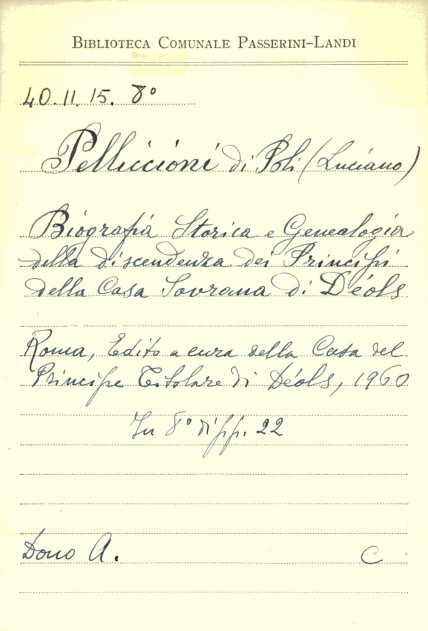 BIBLIOTECA COMUNALE PASSERINI-LANDI
40.11.15. 8°
Pelliccioni di Poli (Luciano)
Biografia Storica e Genealogia
della discendenza dei Principi
della Casa Sovrana di Déols
Roma, Edito a cura della Casa del
Principe Titolare di Déols, 1960
In 8° di pp. 22
Dono A.
C